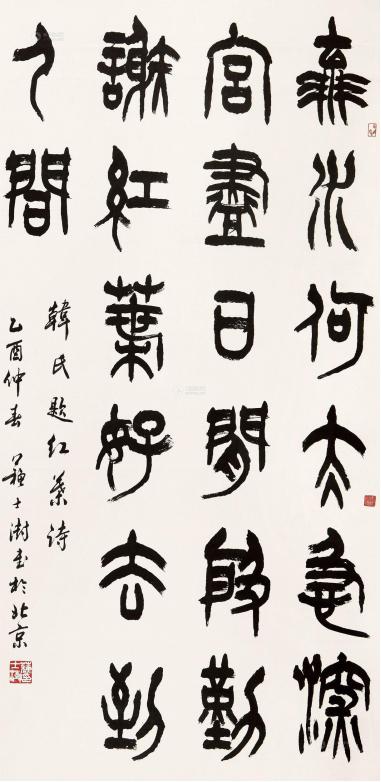 流水何太急深
宫盡日閒殷勤
謝紅葉好去到
人間
韓氏題红葉诗
乙酉仲春 苏士澍书於北京